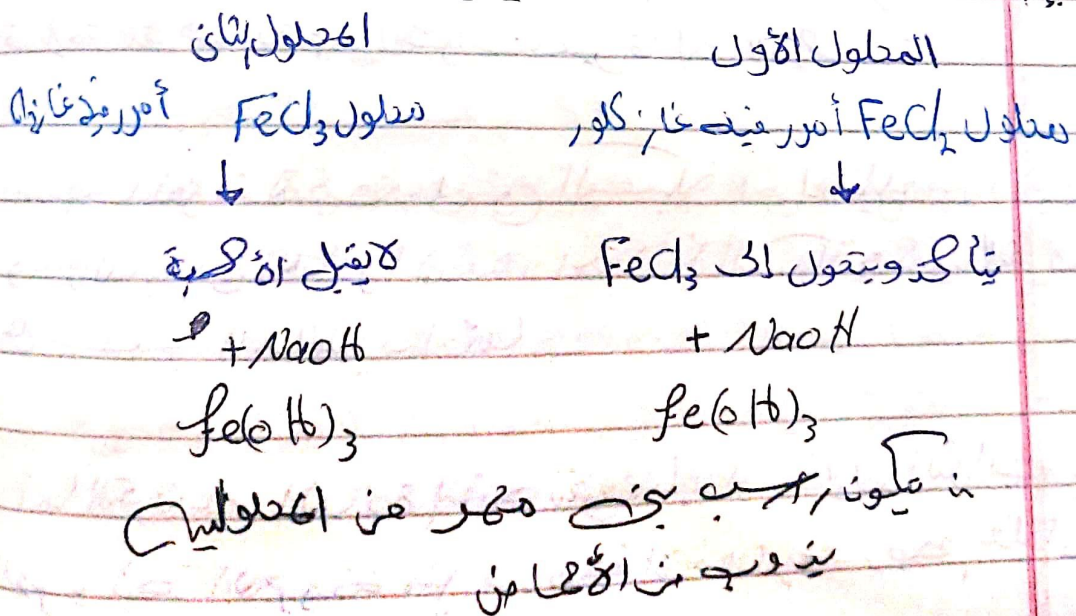 المحلول الأول
محلول FeCl₂ أمرر فيه غاز كلور
↓
يتأكسد ويتحول إلى FeCl₃
+ NaOH
Fe(OH)₃
المحلول الثاني
محلول FeCl₃ أمرر فيه غاز
↓
لا يقبل الأكسدة
+ NaOH
Fe(OH)₃
∴ يتكون راسب بني محمر من المحلولين
يذوب في الأحماض